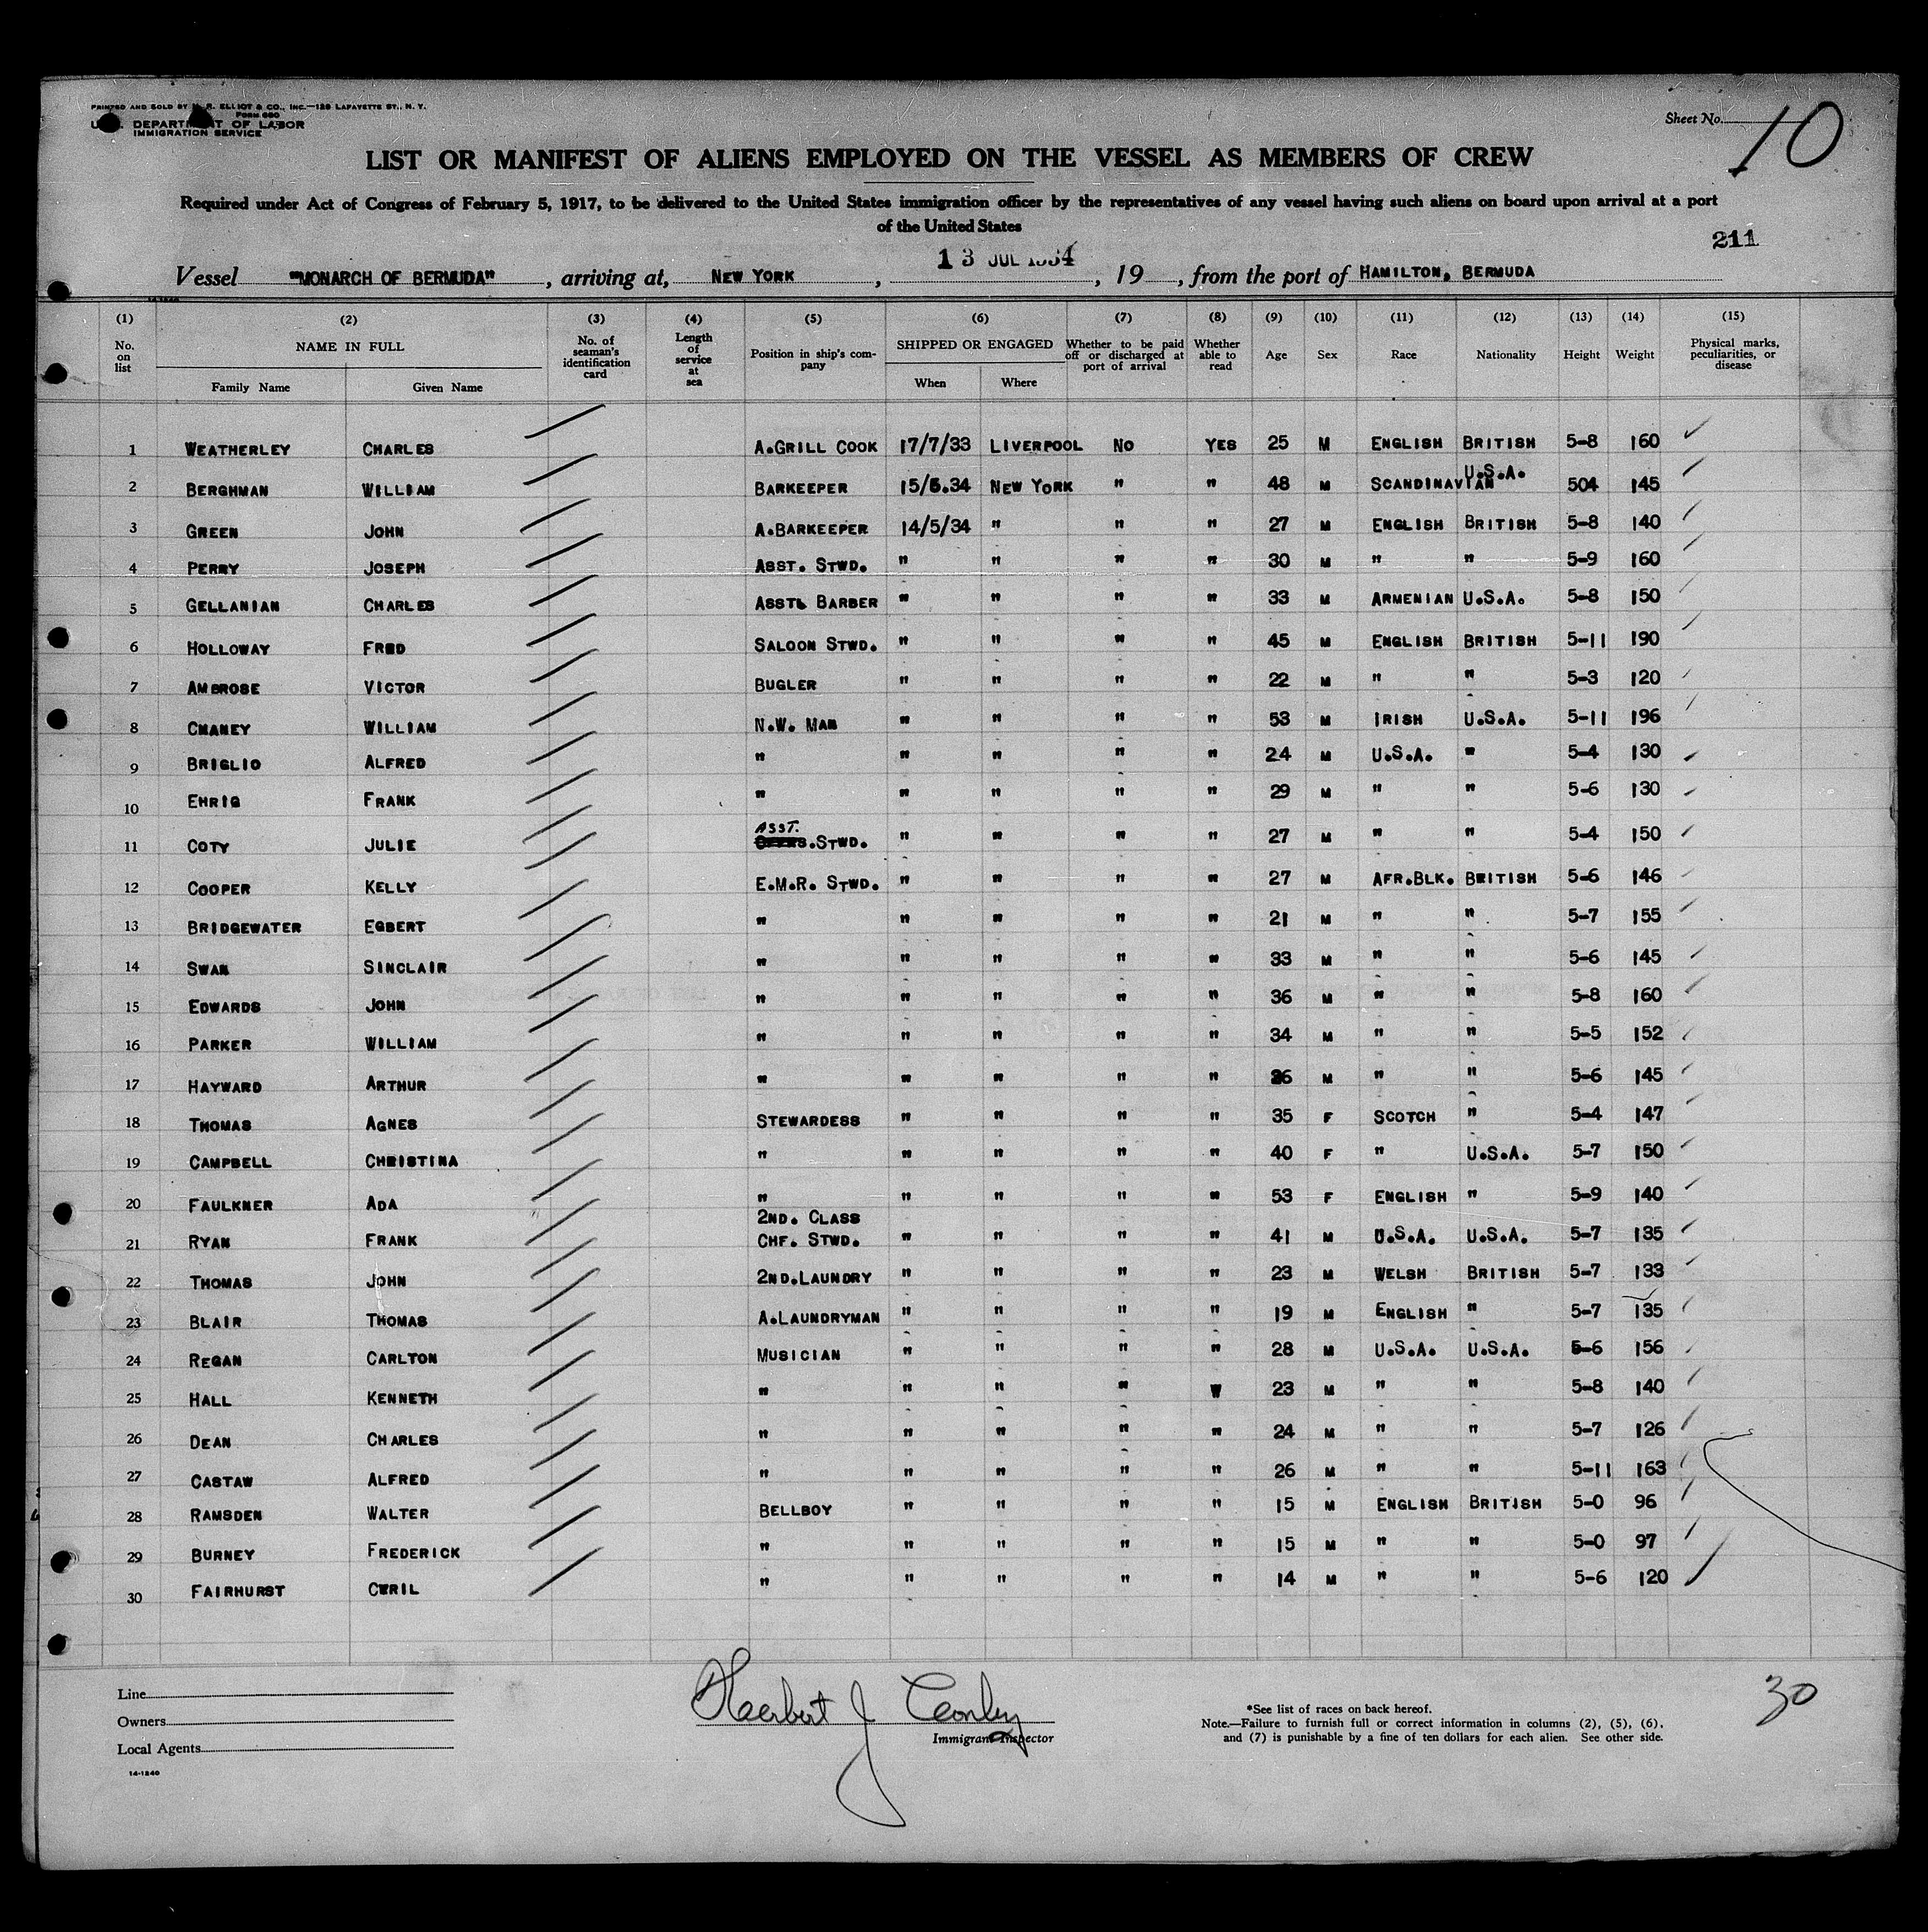 PRINTED AND SOLD BY R. ELLIOT & CO., INC.—128 LAFAYETTE ST., N. Y.
FORM 680
DEPARTMENT OF LABOR
IMMIGRATION SERVICE
Sheet No. 10
LIST OR MANIFEST OF ALIENS EMPLOYED ON THE VESSEL AS MEMBERS OF CREW
Required under Act of Congress of February 5, 1917, to be delivered to the United States immigration officer by the representatives of any vessel having such aliens on board upon arrival at a port
of the United States
211
Vessel "MONARCH OF BERMUDA", arriving at, NEW YORK, 13 JUL 1934, 19 , from the port of HAMILTON, BERMUDA
(1) (2) (3) (4) (5) (6) (7) (8) (9) (10) (11) (12) (13) (14) (15)
No. on list NAME IN FULL Family Name Given Name No. of seaman's identification card Length of service at sea Position in ship's company SHIPPED OR ENGAGED When Where Whether to be paid off or discharged at port of arrival Whether able to read Age Sex Race Nationality Height Weight Physical marks, peculiarities, or disease
1 WEATHERLEY CHARLES A.GRILL COOK 17/7/33 LIVERPOOL NO YES 25 M ENGLISH BRITISH 5-8 160
2 BERGHMAN WILLIAM BARKEEPER 15/6.34 NEW YORK " " 48 M SCANDINAVIAN U.S.A. 504 145
3 GREEN JOHN A.BARKEEPER 14/5/34 " " " 27 M ENGLISH BRITISH 5-8 140
4 PERRY JOSEPH ASST. STWD. " " " " 30 M " " 5-9 160
5 GELLANIAN CHARLES ASST. BARBER " " " " 33 M ARMENIAN U.S.A. 5-8 150
6 HOLLOWAY FRED SALOON STWD. " " " " 45 M ENGLISH BRITISH 5-11 190
7 AMBROSE VICTOR BUGLER " " " " 22 M " " 5-3 120
8 CHANEY WILLIAM N.W. MAN " " " " 53 M IRISH U.S.A. 5-11 196
9 BRIGLIO ALFRED " " " " " 24 M U.S.A. " 5-4 130
10 EHRIG FRANK " " " " " 29 M " " 5-6 130
11 COTY JULIE ASST. STWD. " " " " 27 M " " 5-4 150
12 COOPER KELLY E.M.R. STWD. " " " " 27 M AFR.BLK. BRITISH 5-6 146
13 BRIDGEWATER EGBERT " " " " " 21 M " " 5-7 155
14 SWAN SINCLAIR " " " " " 33 M " " 5-6 145
15 EDWARDS JOHN " " " " " 36 M " " 5-8 160
16 PARKER WILLIAM " " " " " 34 M " " 5-5 152
17 HAYWARD ARTHUR " " " " " 26 M " " 5-6 145
18 THOMAS AGNES STEWARDESS " " " " 35 F SCOTCH " 5-4 147
19 CAMPBELL CHRISTINA " " " " " 40 F " U.S.A. 5-7 150
20 FAULKNER ADA " " " " " 53 F ENGLISH " 5-9 140
21 RYAN FRANK 2ND. CLASS CHF. STWD. " " " " 41 M U.S.A. U.S.A. 5-7 135
22 THOMAS JOHN 2ND.LAUNDRY " " " " 23 M WELSH BRITISH 5-7 133
23 BLAIR THOMAS A.LAUNDRYMAN " " " " 19 M ENGLISH " 5-7 135
24 REGAN CARLTON MUSICIAN " " " " 28 M U.S.A. U.S.A. 5-6 156
25 HALL KENNETH " " " " W 23 M " " 5-8 140
26 DEAN CHARLES " " " " " 24 M " " 5-7 126
27 CASTAW ALFRED " " " " " 26 M " " 5-11 163
28 RAMSDEN WALTER BELLBOY " " " " 15 M ENGLISH BRITISH 5-0 96
29 BURNEY FREDERICK " " " " " 15 M " " 5-0 97
30 FAIRHURST CYRIL " " " " " 14 M " " 5-6 120
30
Line
Owners
Local Agents
14-1240
Herbert J Conley
Immigrant Inspector
*See list of races on back hereof.
Note.—Failure to furnish full or correct information in columns (2), (5), (6),
and (7) is punishable by a fine of ten dollars for each alien. See other side.